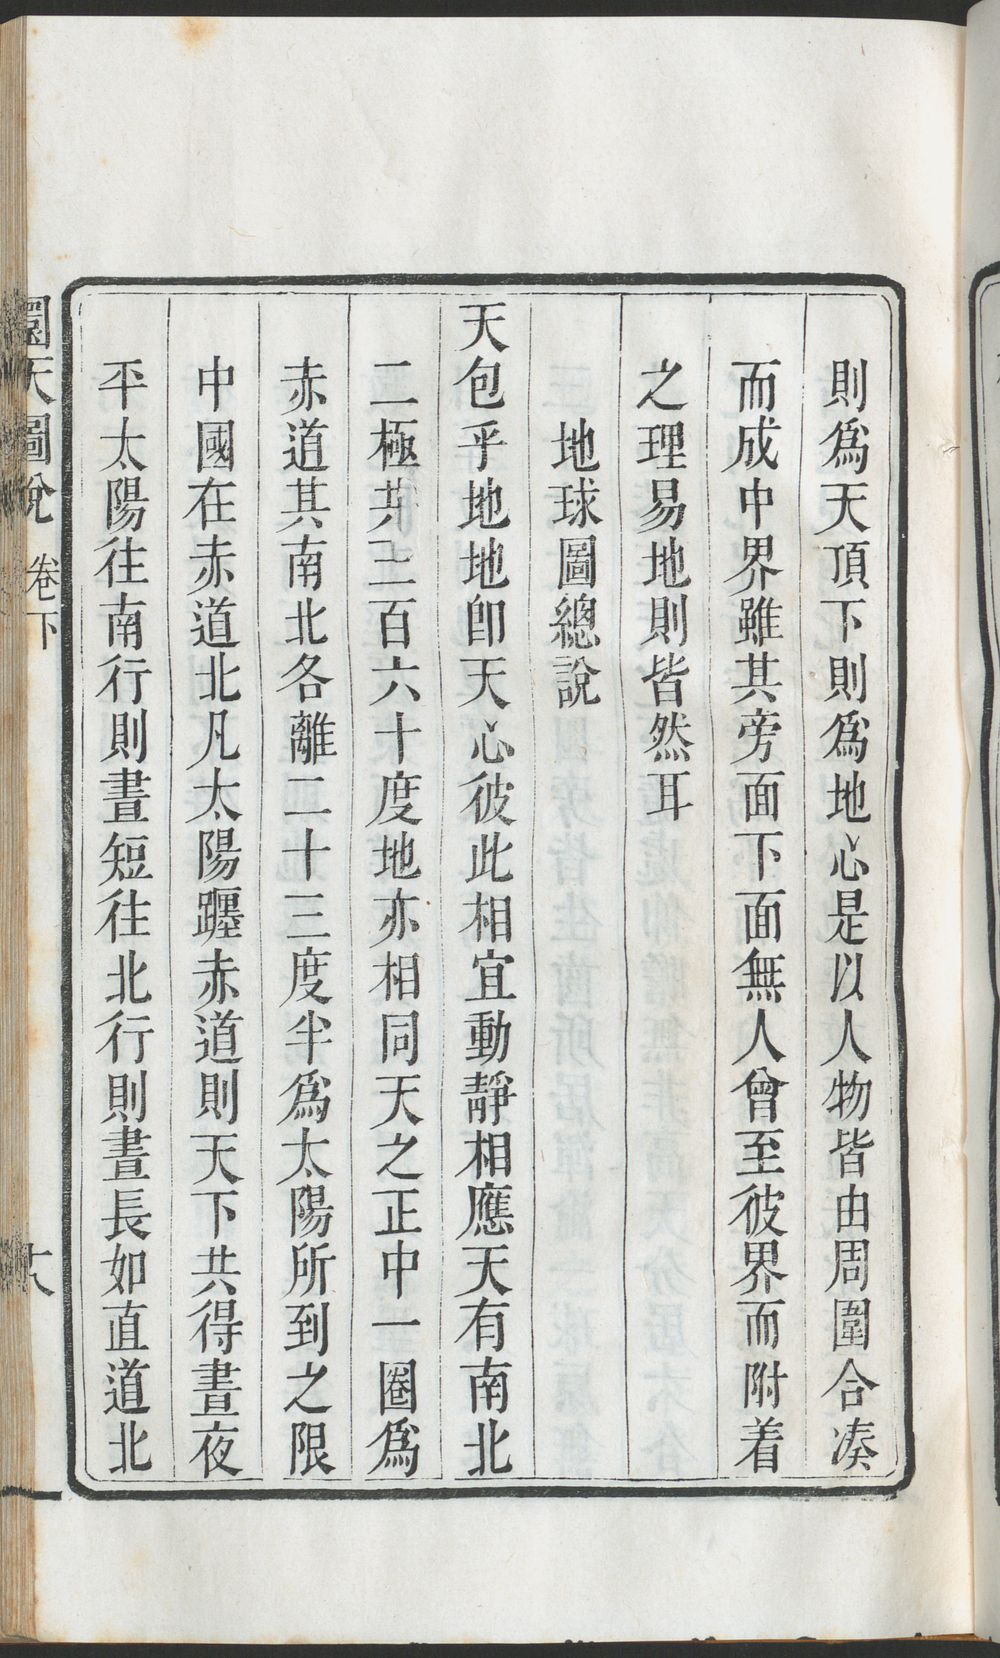 則爲天頂下則爲地心是以人物皆由周圍合湊
而成中界雖其旁面下面無人曾至彼界而附着
之理易地則皆然耳
地球圖總說
天包乎地地卽天心彼此相宜動靜相應天有南北
二極共三百六十度地亦相同天之正中一圈爲
赤道其南北各離二十三度半爲太陽所到之限
中國在赤道北凡太陽躔赤道則天下共得晝夜
平太陽往南行則晝短往北行則晝長如直道北
圜天圖說 卷下 十八